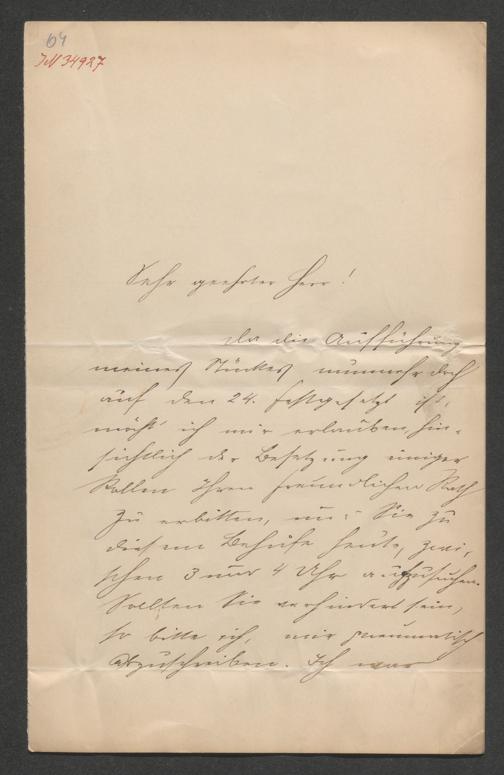 64
IN 34927
Sehr geehrter Herr!
da die Aufführung
meines Stückes nunmehr doch
auf den 24. festgesetzt ist,
möcht' ich mir erlauben, hin-
sichtlich der Besetzung einiger
Rollen Ihren freundlichen Rath
zu erbitten, und Sie zu
diesem Behufe heute, zwi-
schen 3 und 4 Uhr aufzusuchen.
Sollten Sie verhindert sein,
so bitte ich, mir pneumatisch
abzuschreiben. Ich war